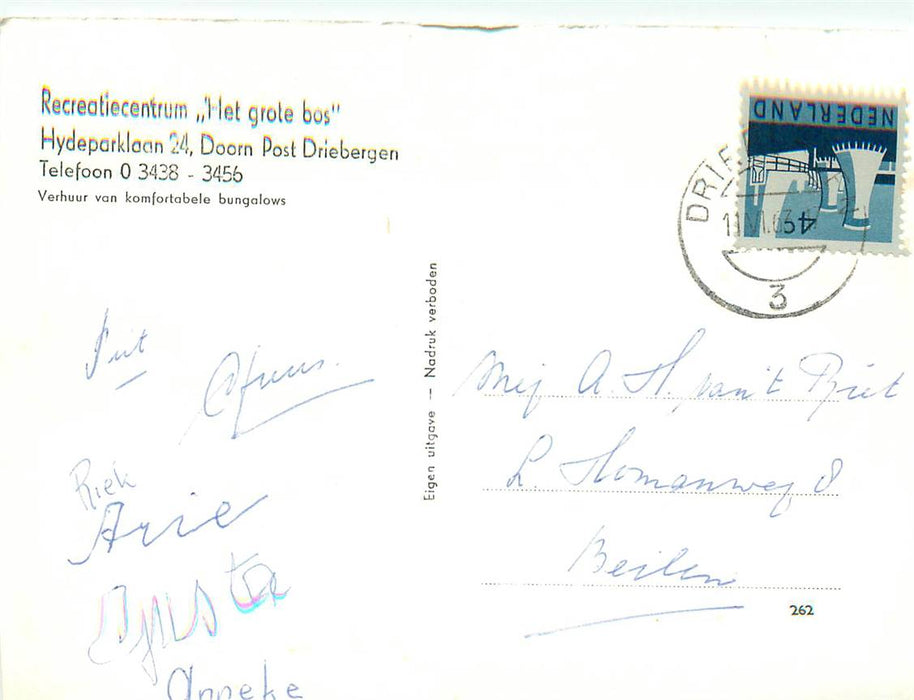 Recreatiecentrum „Het grote bos"
Hydeparklaan 24, Doorn Post Driebergen
Telefoon 0 3438 - 3456
Verhuur van komfortabele bungalows
Piet
Riek
Arie
Anneke
Eigen uitgave — Nadruk verboden
NEDERLAND
4
3
Mej A. H. van 't Riet
L. Homanweg 8
Beilen
262